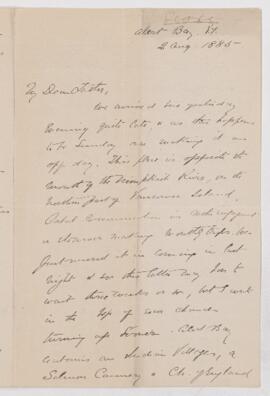 Alert Bay, V.I.
2 Aug. 1885
My Dear Father,
We arrived here yesterday
evening quite late, & as this happens
to be Sunday are making it an
off day. This place is opposite the
mouth of the Nimpkish River, on the
northern part of Vancouver Island.
Postal Communication is
a steamer making monthly trips. We
just missed it in coming in last
night & so this letter may have to
wait three weeks or so, but I write
in the hope of some chance
turning up sooner. Alert Bay
contains an Indian Village, a
Salmon Cannery & Ch. of England